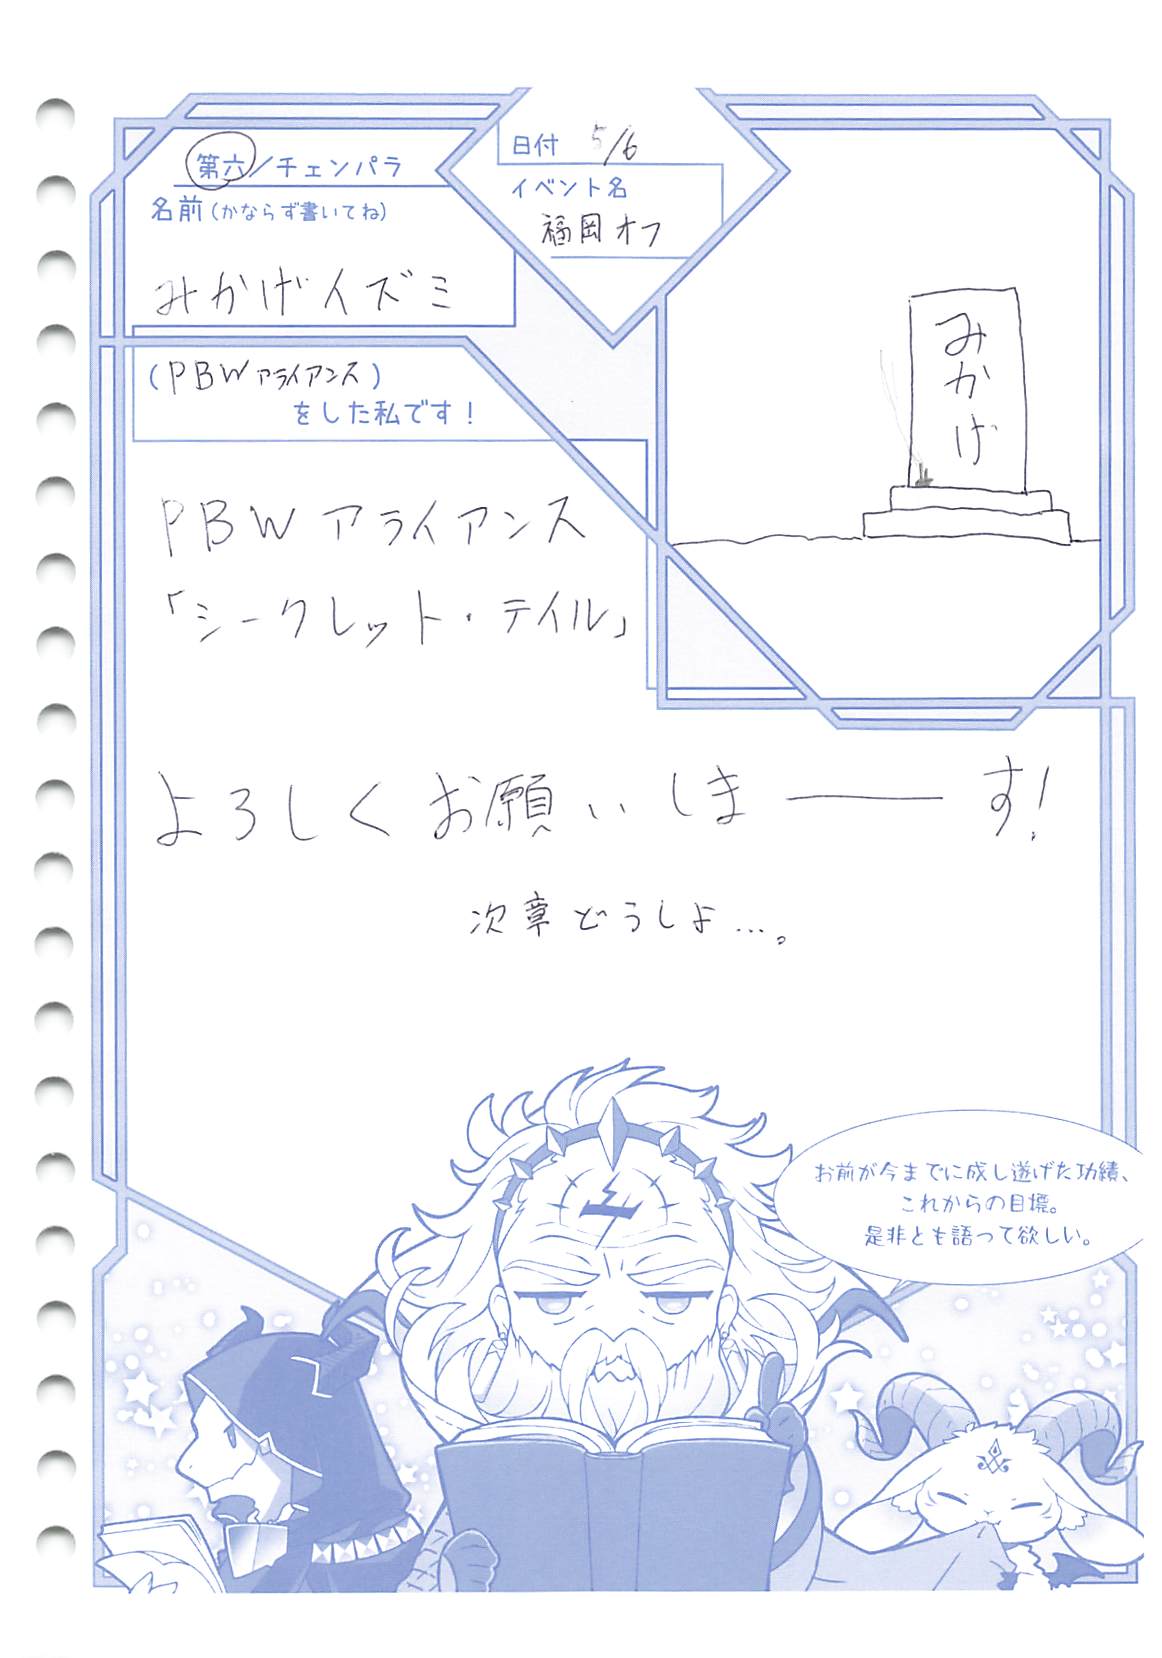 第六/チェンパラ
名前(かならず書いてね)
みかげイズミ
日付 5/6
イベント名
福岡オフ
(PBWアライアンス)
をした私です!
みかげ
PBWアライアンス
「シークレット・テイル」
よろしくお願いしま――す!
次章どうしよ…。
お前が今までに成し遂げた功績、
これからの目標。
是非とも語って欲しい。